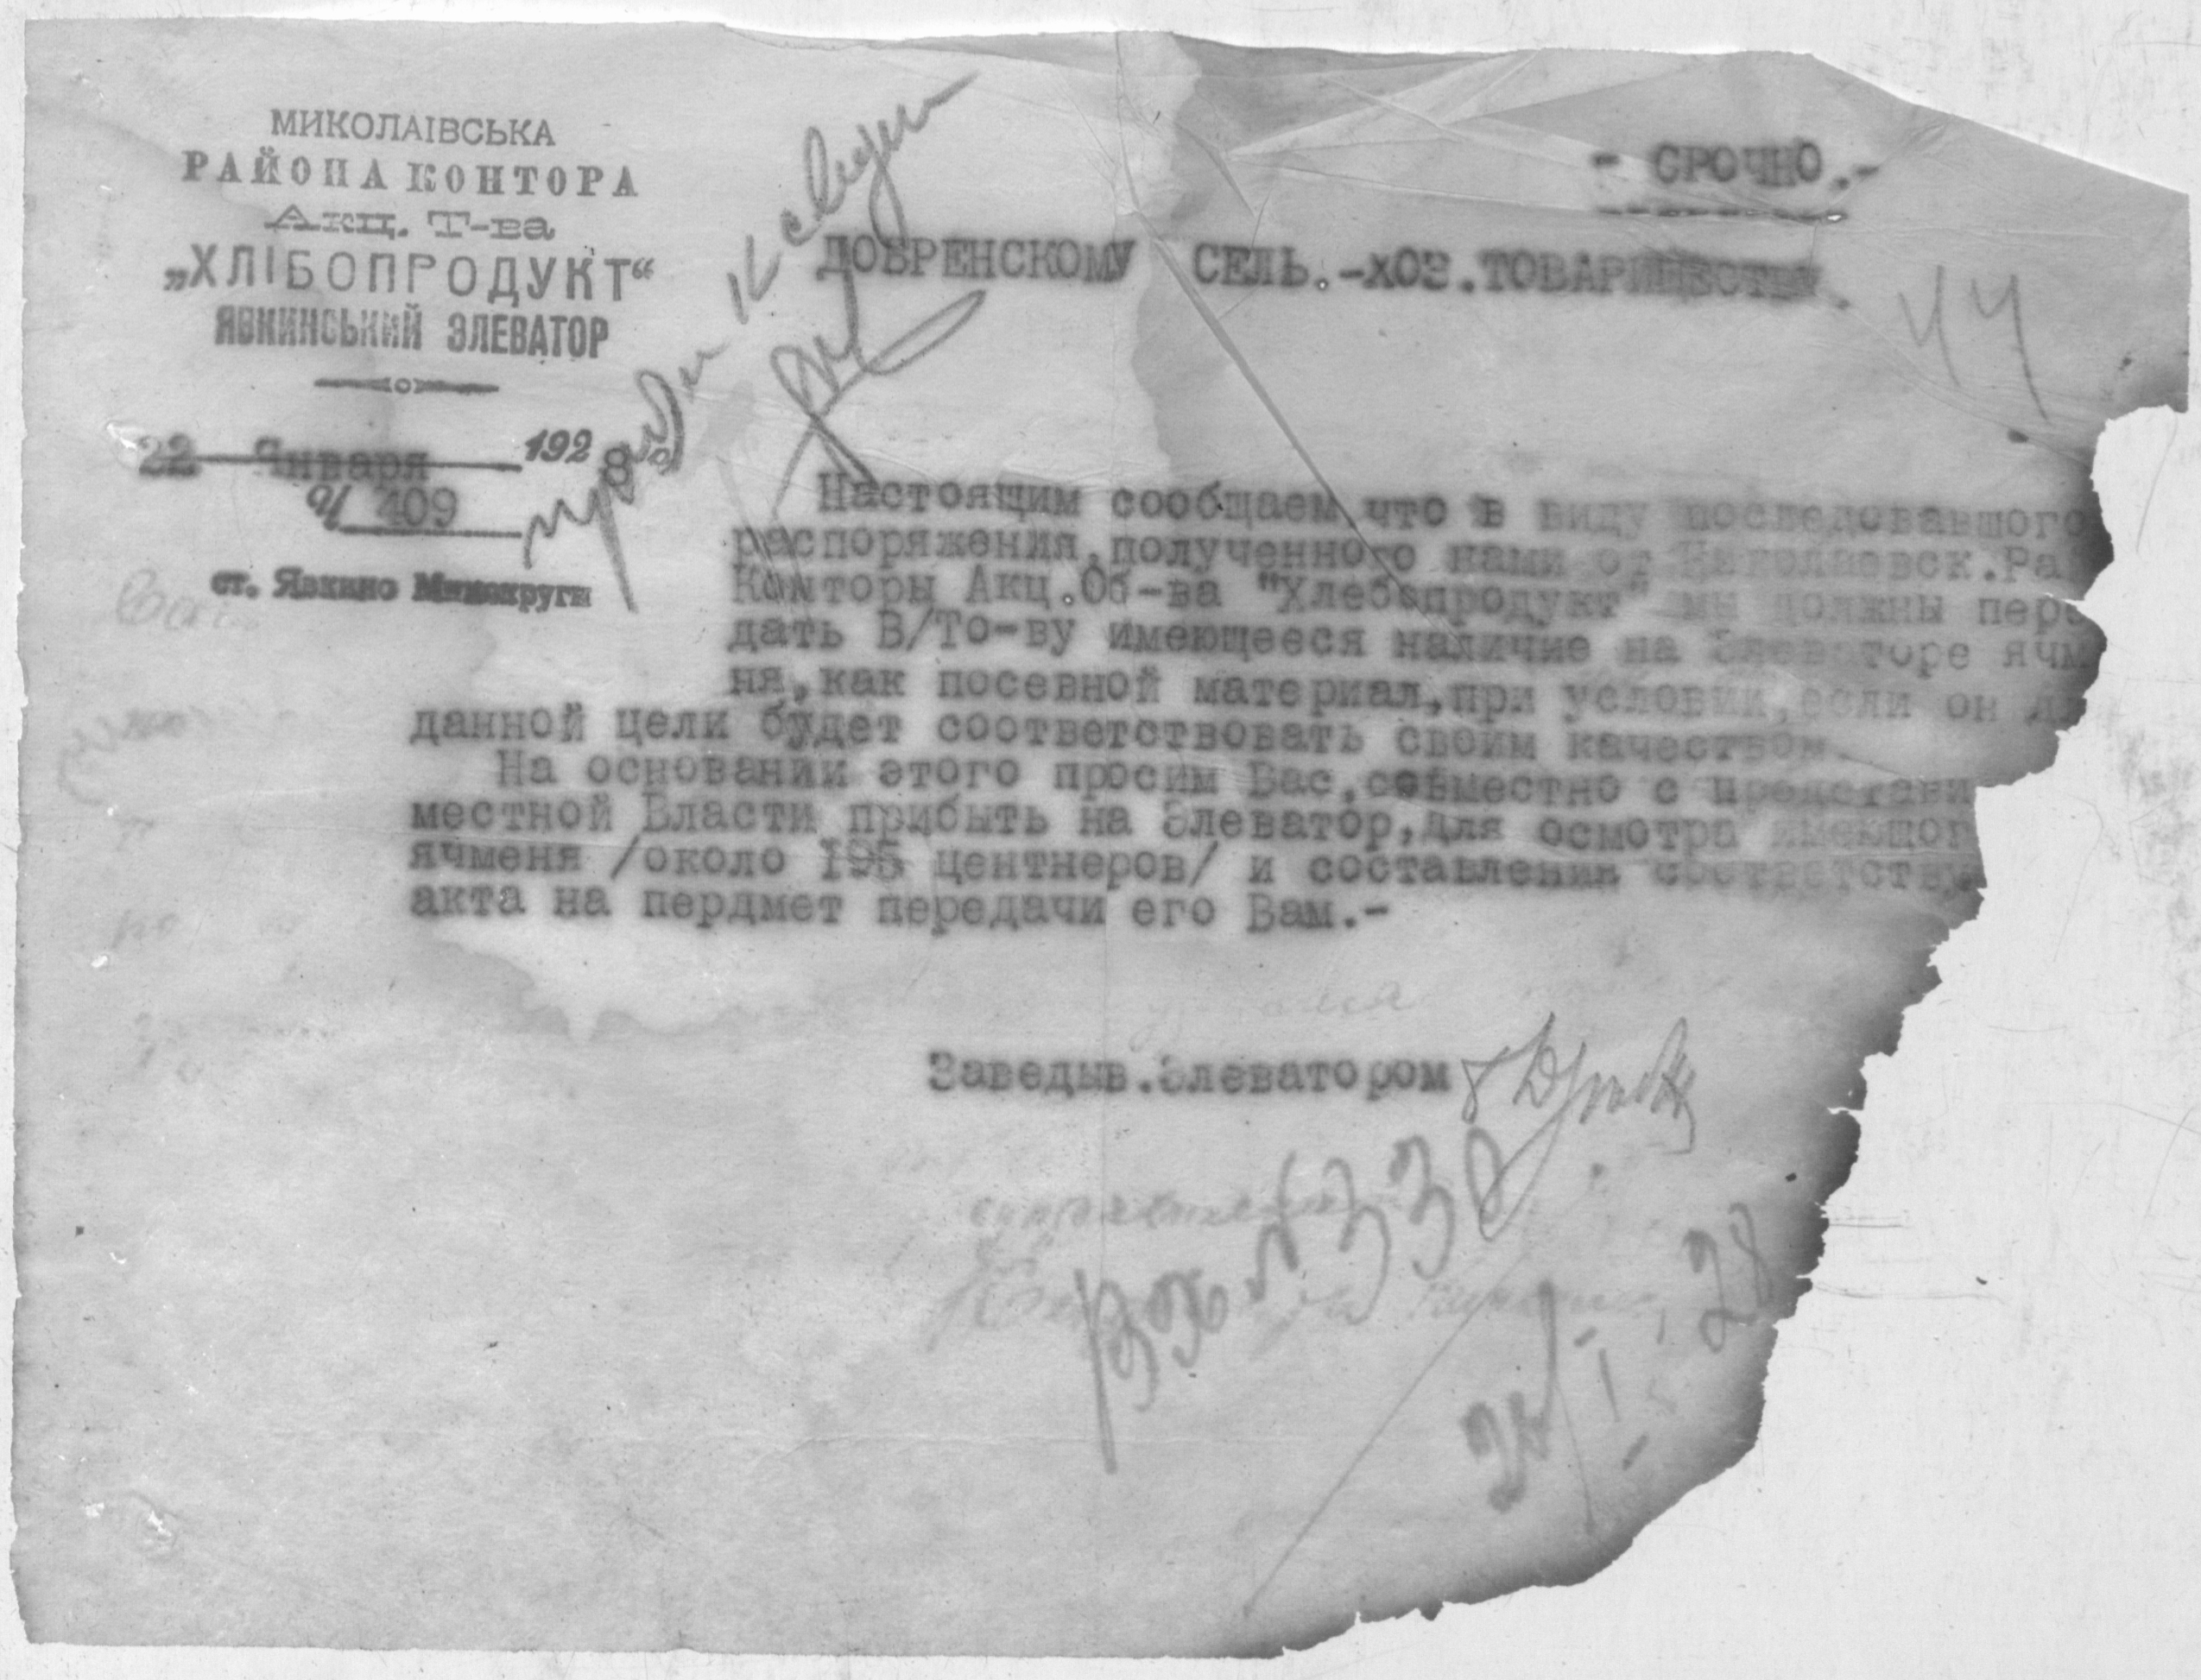 МИКОЛАІВСЬКА
РАЙОНА КОНТОРА
Акц. Т-ва
„ХЛІБОПРОДУКТ“
ЯВКИНСЬКИЙ ЭЛЕВАТОР
22 Января 1928
№ 409
ст. Явкино Микокруги
к сведению
- СРОЧНО.-
ДОБРЕНСКОМУ СЕЛЬ.-ХОЗ.ТОВАРИЩЕСТВУ.
44
Настоящим сообщаем,что в виду последовавшого
распоряжения,полученного нами от Николаевск.Ра
Конторы Акц.Об-ва "Хлебопродукт" мы должны пере
дать В/То-ву имеющееся наличие на Элеваторе ячм
ня,как посевной материал,при условии,если он дл
данной цели будет соответствовать своим качеством.
На основании этого просим Вас,совместно с представи
местной Власти прибыть на Элеватор,для осмотра имеющог
ячменя /около 195 центнеров/ и составления соответству
акта на пердмет передачи его Вам.-
Заведыв.Элеватором
Вх № 330
24/I-28